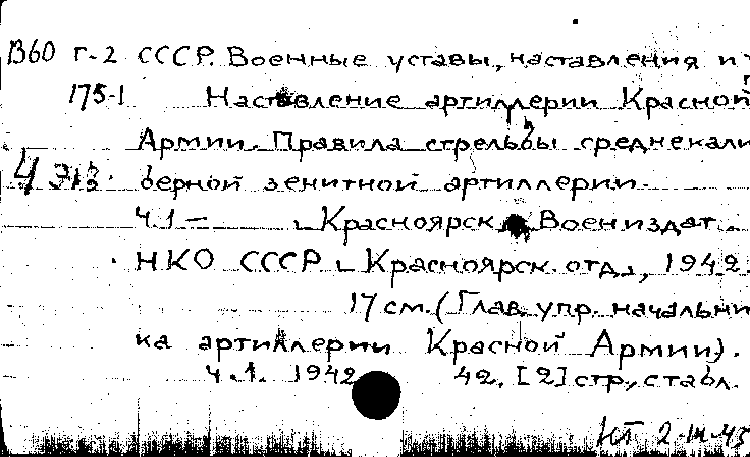 В60 г-2 СССР. Военные уставы, наставления и
175-1 Наставление артиллерии Красной
Армии. Правила стрельбы среднекали
4 Экз. берной зенитной артиллерии.
Ч.1 — Красноярск, Воениздат
НКО СССР Красноярск. отд., 1942.
17 см. (Глав. упр. начальни
ка артиллерии Красной Армии).
Ч.1. 1942 42, [2] стр., с табл.